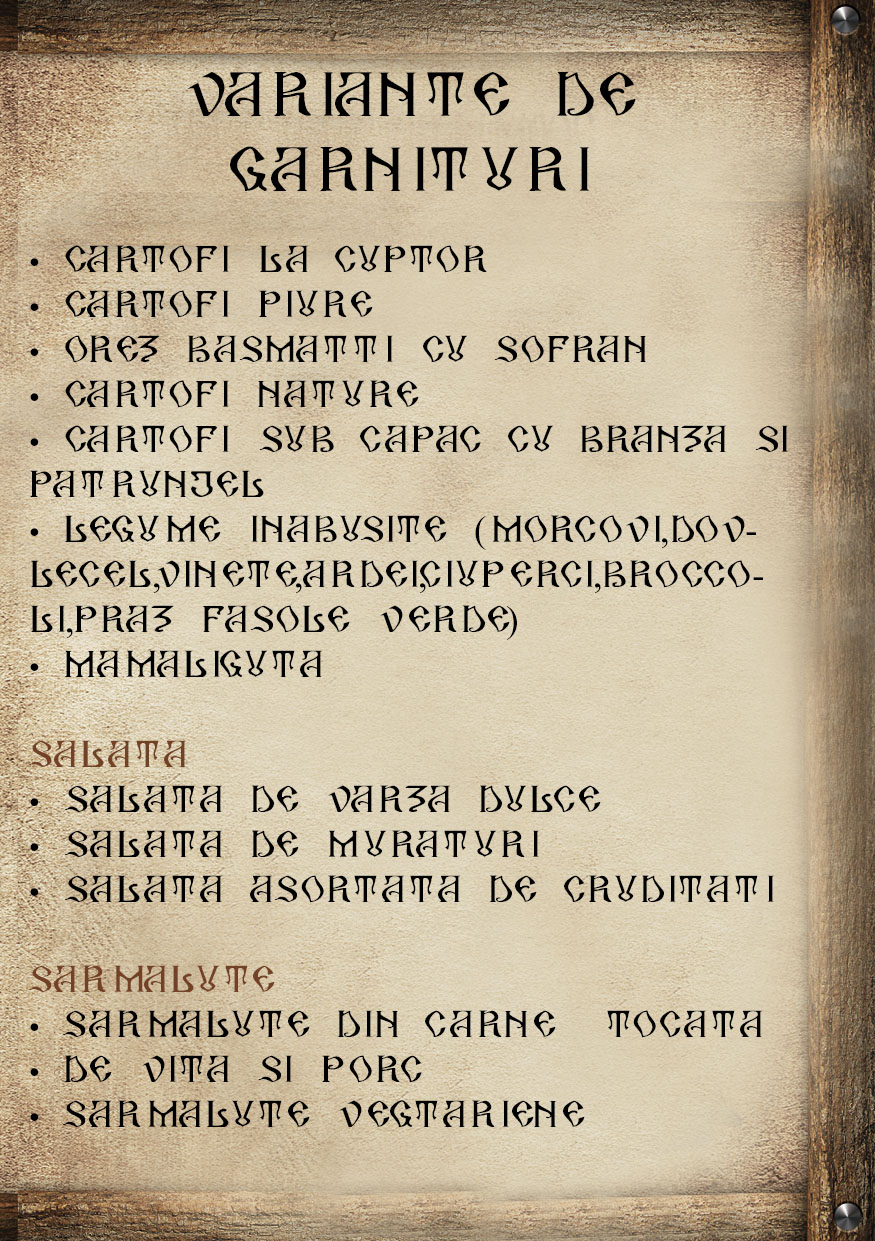 VARIANTE DE
GARNITURI
• CARTOFI LA CUPTOR
• CARTOFI PIURE
• OREZ BASMATTI CU SOFRAN
• CARTOFI NATURE
• CARTOFI SUB CAPAC CU BRANZA SI
PATRUNJEL
• LEGUME INABUSITE (MORCOVI,DOV-
LECEL,VINETE,ARDEI,CIUPERCI,BROCCO-
LI,PRAZ FASOLE VERDE)
• MAMALIGUTA
SALATA
• SALATA DE VARZA DULCE
• SALATA DE MURATURI
• SALATA ASORTATA DE CRUDITATI
SARMALUTE
• SARMALUTE DIN CARNE TOCATA
• DE VITA SI PORC
• SARMALUTE VEGTARIENE